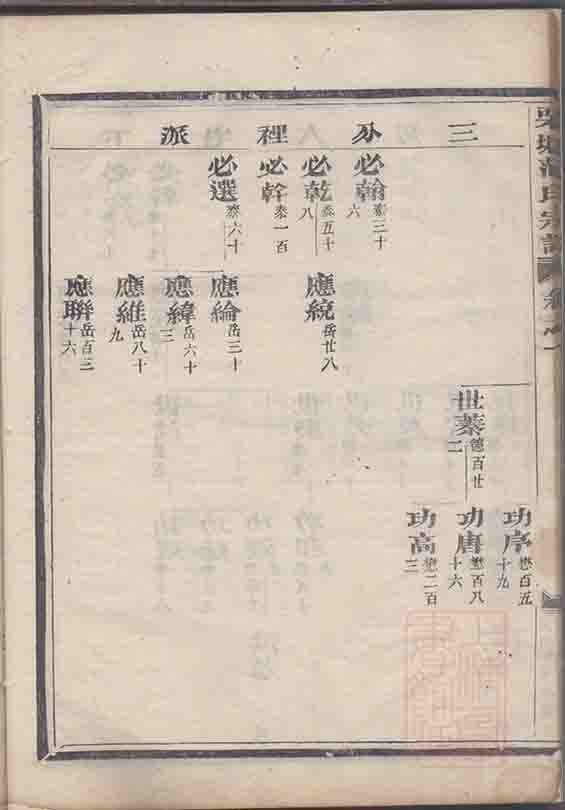 氏宗譜
三分裡派
功序 懋百五十九
世蓁 德百廿二
功唐 懋百八十六
功高 懋二百三
必翰 泰三十六
必乾 泰五十八
應統 岳廿八
必幹 泰一百
必選 泰六十
應綸 岳三十
應緯 岳六十三
應維 岳八十九
應聯 岳百三十六